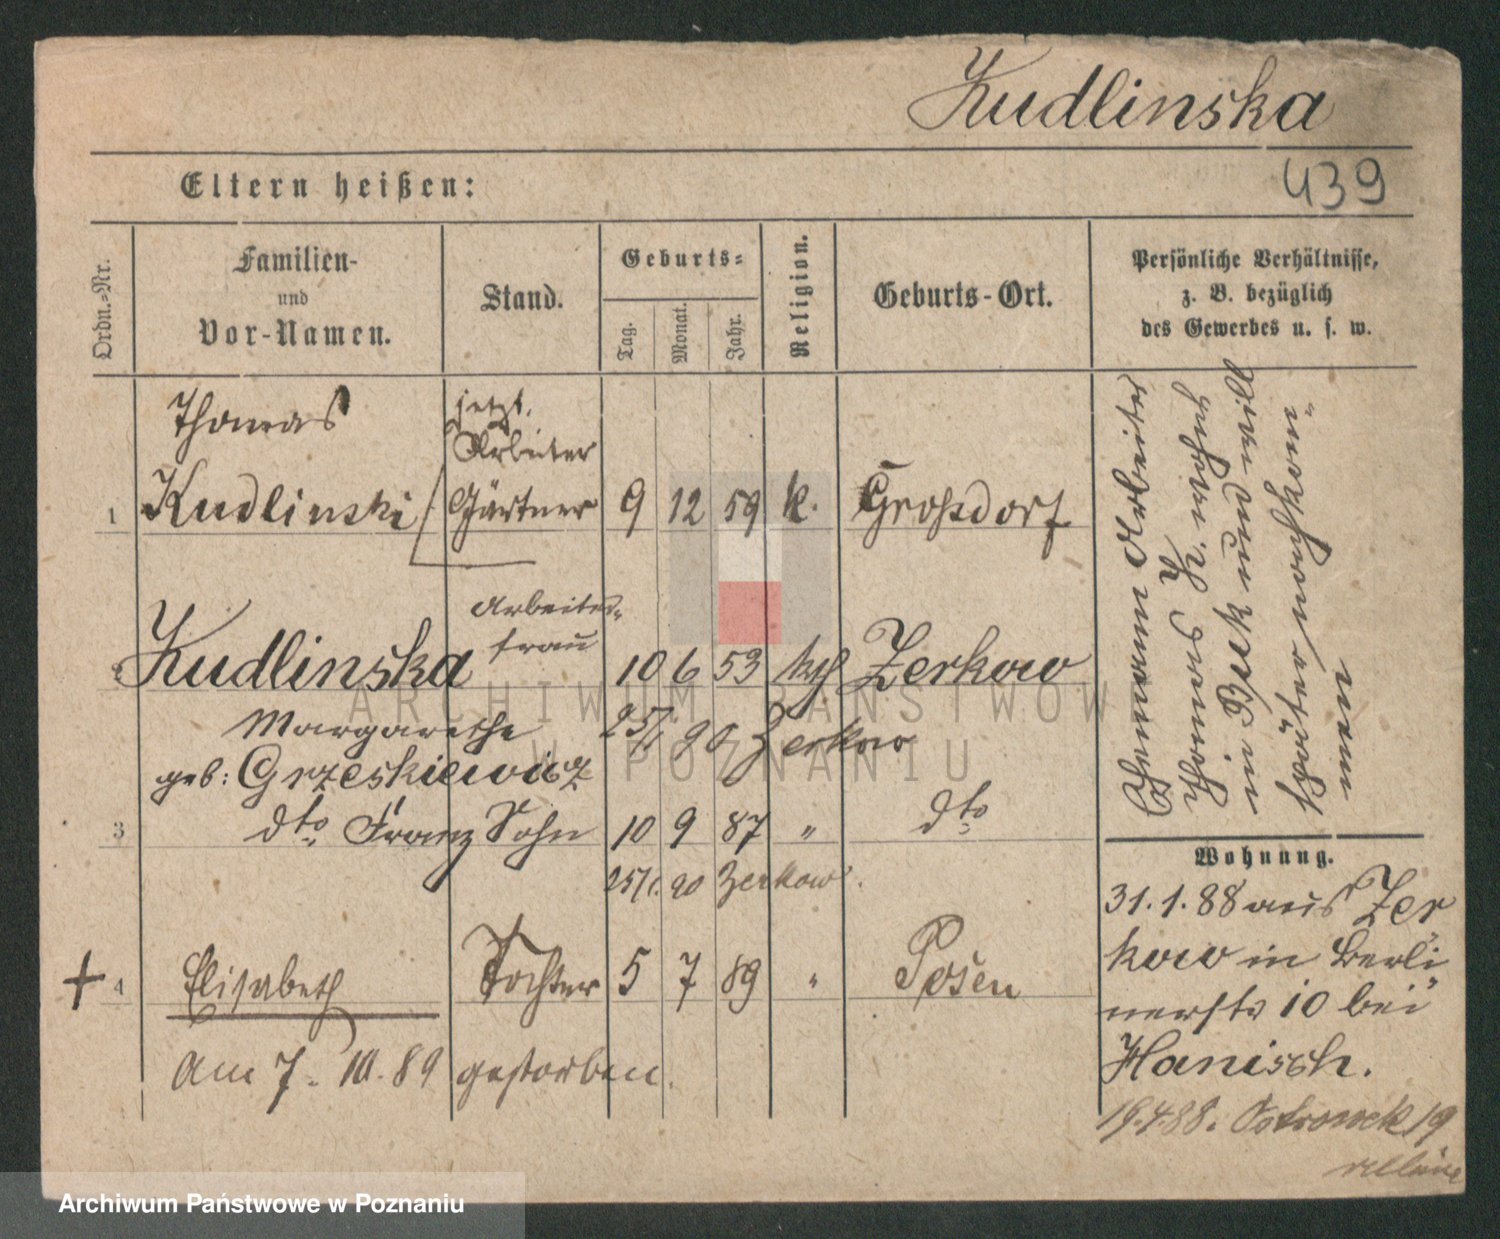 Kudlinska
439
Eltern heißen:
Ordn.-Nr.
Familien-
und
Vor-Namen.
Stand.
Geburts-
Tag.
Monat.
Jahr.
Religion.
Geburts-Ort.
Persönliche Verhältnisse,
z. B. bezüglich
des Gewerbes u. s. w.
Thomas
jetzt.
Arbeiter
1 Kudlinski Gärtner 9 12 59 k. Großdorf
Arbeiters-
frau
2 Kudlinska 10 6 53 kth Zerkow
Margarethe 25/1 90 Zerkow
geb: Grzeskiewicz
3 dto Franz Sohn 10 9 87 " dto
25/1. 90 Zerkow.
+ 4 Elisabeth Tochter 5 7 89 " Posen
Am 7. 10. 89 gestorben.
Ehemann Arbeiter
Thomas K.
in Buk und wird
später nachkom-
men
Wohnung.
31.1.88 aus Zer
kow in Berli
nerstr 10 bei
Hanisch.
19.4.88. Ostrowek 19
ARCHIWUM PAŃSTWOWE
W POZNANIU
Archiwum Państwowe w Poznaniu